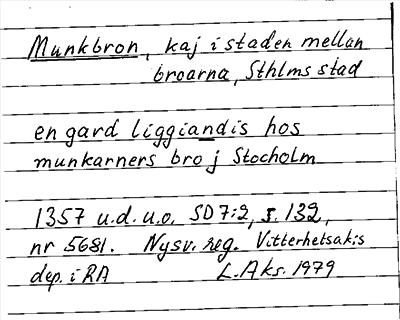 Munkbron, kaj i staden mellan
broarna, Sthlms stad
en gard liggiandis hos
munkarners bro j Stocholm
1357 u.d. u.o. SD 7:2, s. 132,
nr 5681. Nysv. reg. Vitterhetsak:s
dep. i RA L. Aks. 1979